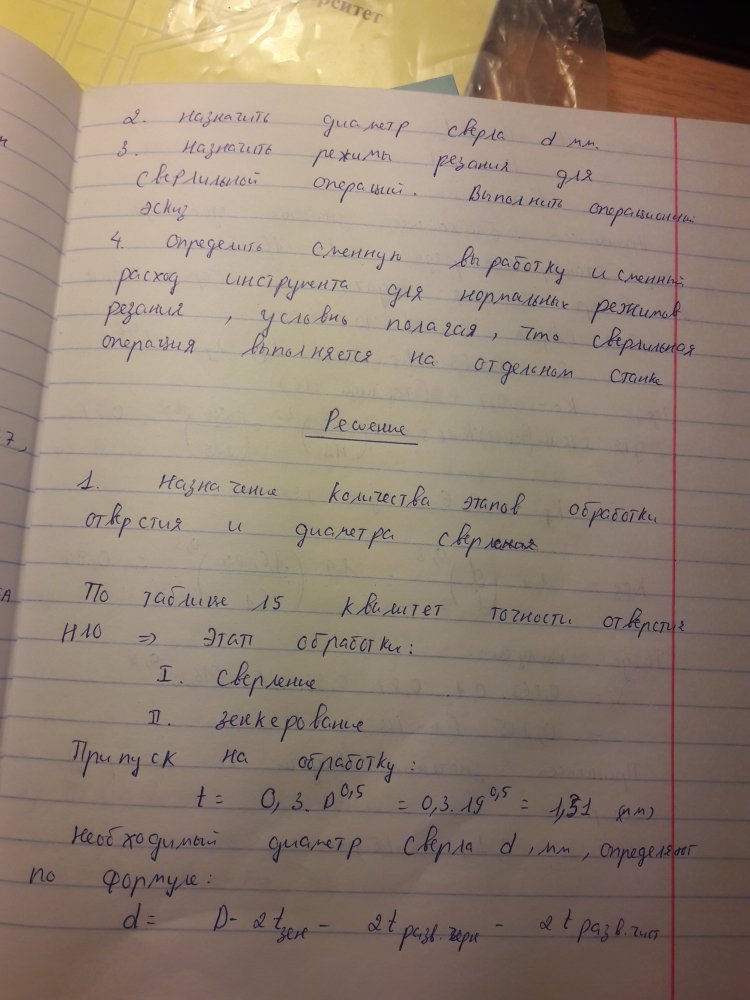 рситет
2. Назначить диаметр сверла d мм.
3. Назначить режимы резания для
сверлильной операций. Выполнить операционный
эскиз
4. Определить сменную выработку и сменный
расход инструмента для нормальных режимов
резания, условно полагая, что сверлильная
операция выполняется на отдельном станке
Решение
1. Назначение количества этапов обработки
отверстия и диаметра сверления
По таблице 15 квалитет точности отверстия
H10 => Этап обработки:
I. Сверление
II. зенкерование
Припуск на обработку:
t = 0,3.D^0,5 = 0,3.19^0,5 = 1,31 (мм)
Необходимый диаметр сверла d, мм, определяют
по формуле:
d = D - 2t зен - 2t разв.черн - 2t разв.чист